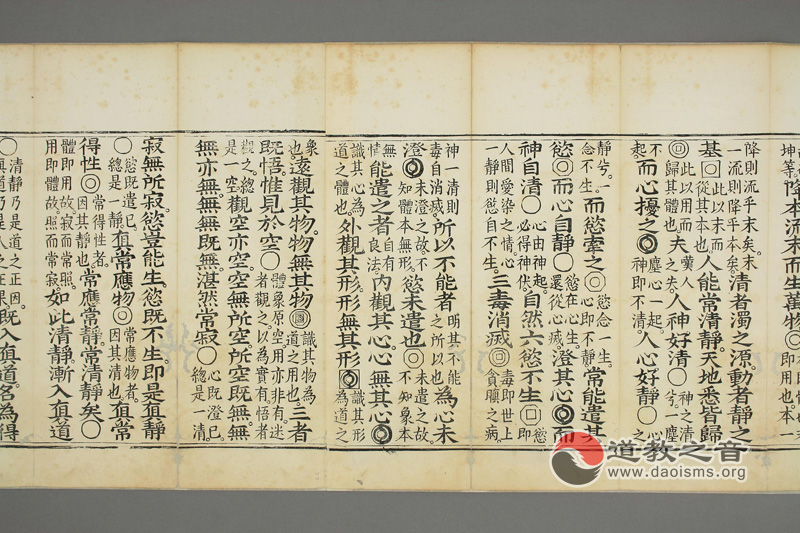 坤等。降本流末而生萬物。即用也。本一
降則流乎末矣。末一流則降乎本矣。清者濁之源。動者靜之
基此以末而從其本也人能常清靜。天地悉皆歸
此以用而歸其體也。夫嘆人之夫。人神好清神之清兮。一塵
不起。而心擾之塵心一起。神即不清。人心好靜心之
靜兮。一念不生。而慾牽之慾念一生。心即不靜。常能遣其
慾而心自靜慾在心生。還從心滅。澄其心而
神自清心由神起。必得神伏。自然六慾不生慾即
人間愛染之情。心一靜則慾自不生。三毒消滅毒即世上貪嗔之病。
神一清則毒自消滅。所以不能者明其不能之所以也為心未
澄未澄之故。不知體本無形。慾未遣也未遣之故。不知象本
無情能遣之者自有良法。內觀其心。心無其心
識其心為道之體也。外觀其形。形無其形識其形為道之
象也。遠觀其物。物無其物識其物為道之用也。三者
既悟。惟見於空體象原空。用亦非有。迷者觀之。以為實有。悟者
觀之。總是一空觀空亦空。空無所空。所空既無。無
無亦無。無無既無。湛然常寂心既澄已。總是一清。
寂無所寂。慾豈能生。慾既不生。即是真靜
慾既遣已。總是一靜。真常應物常應物者。因其清也。真常
得性常得性者。因其靜也。常應常靜。常清靜矣
體即用故。寂而常照。用即體故。照而常寂。如此清靜。漸入真道
清靜乃是道之正因。真道乃是人之正果。既入真道。名為得
道教之音
www.daoisms.org